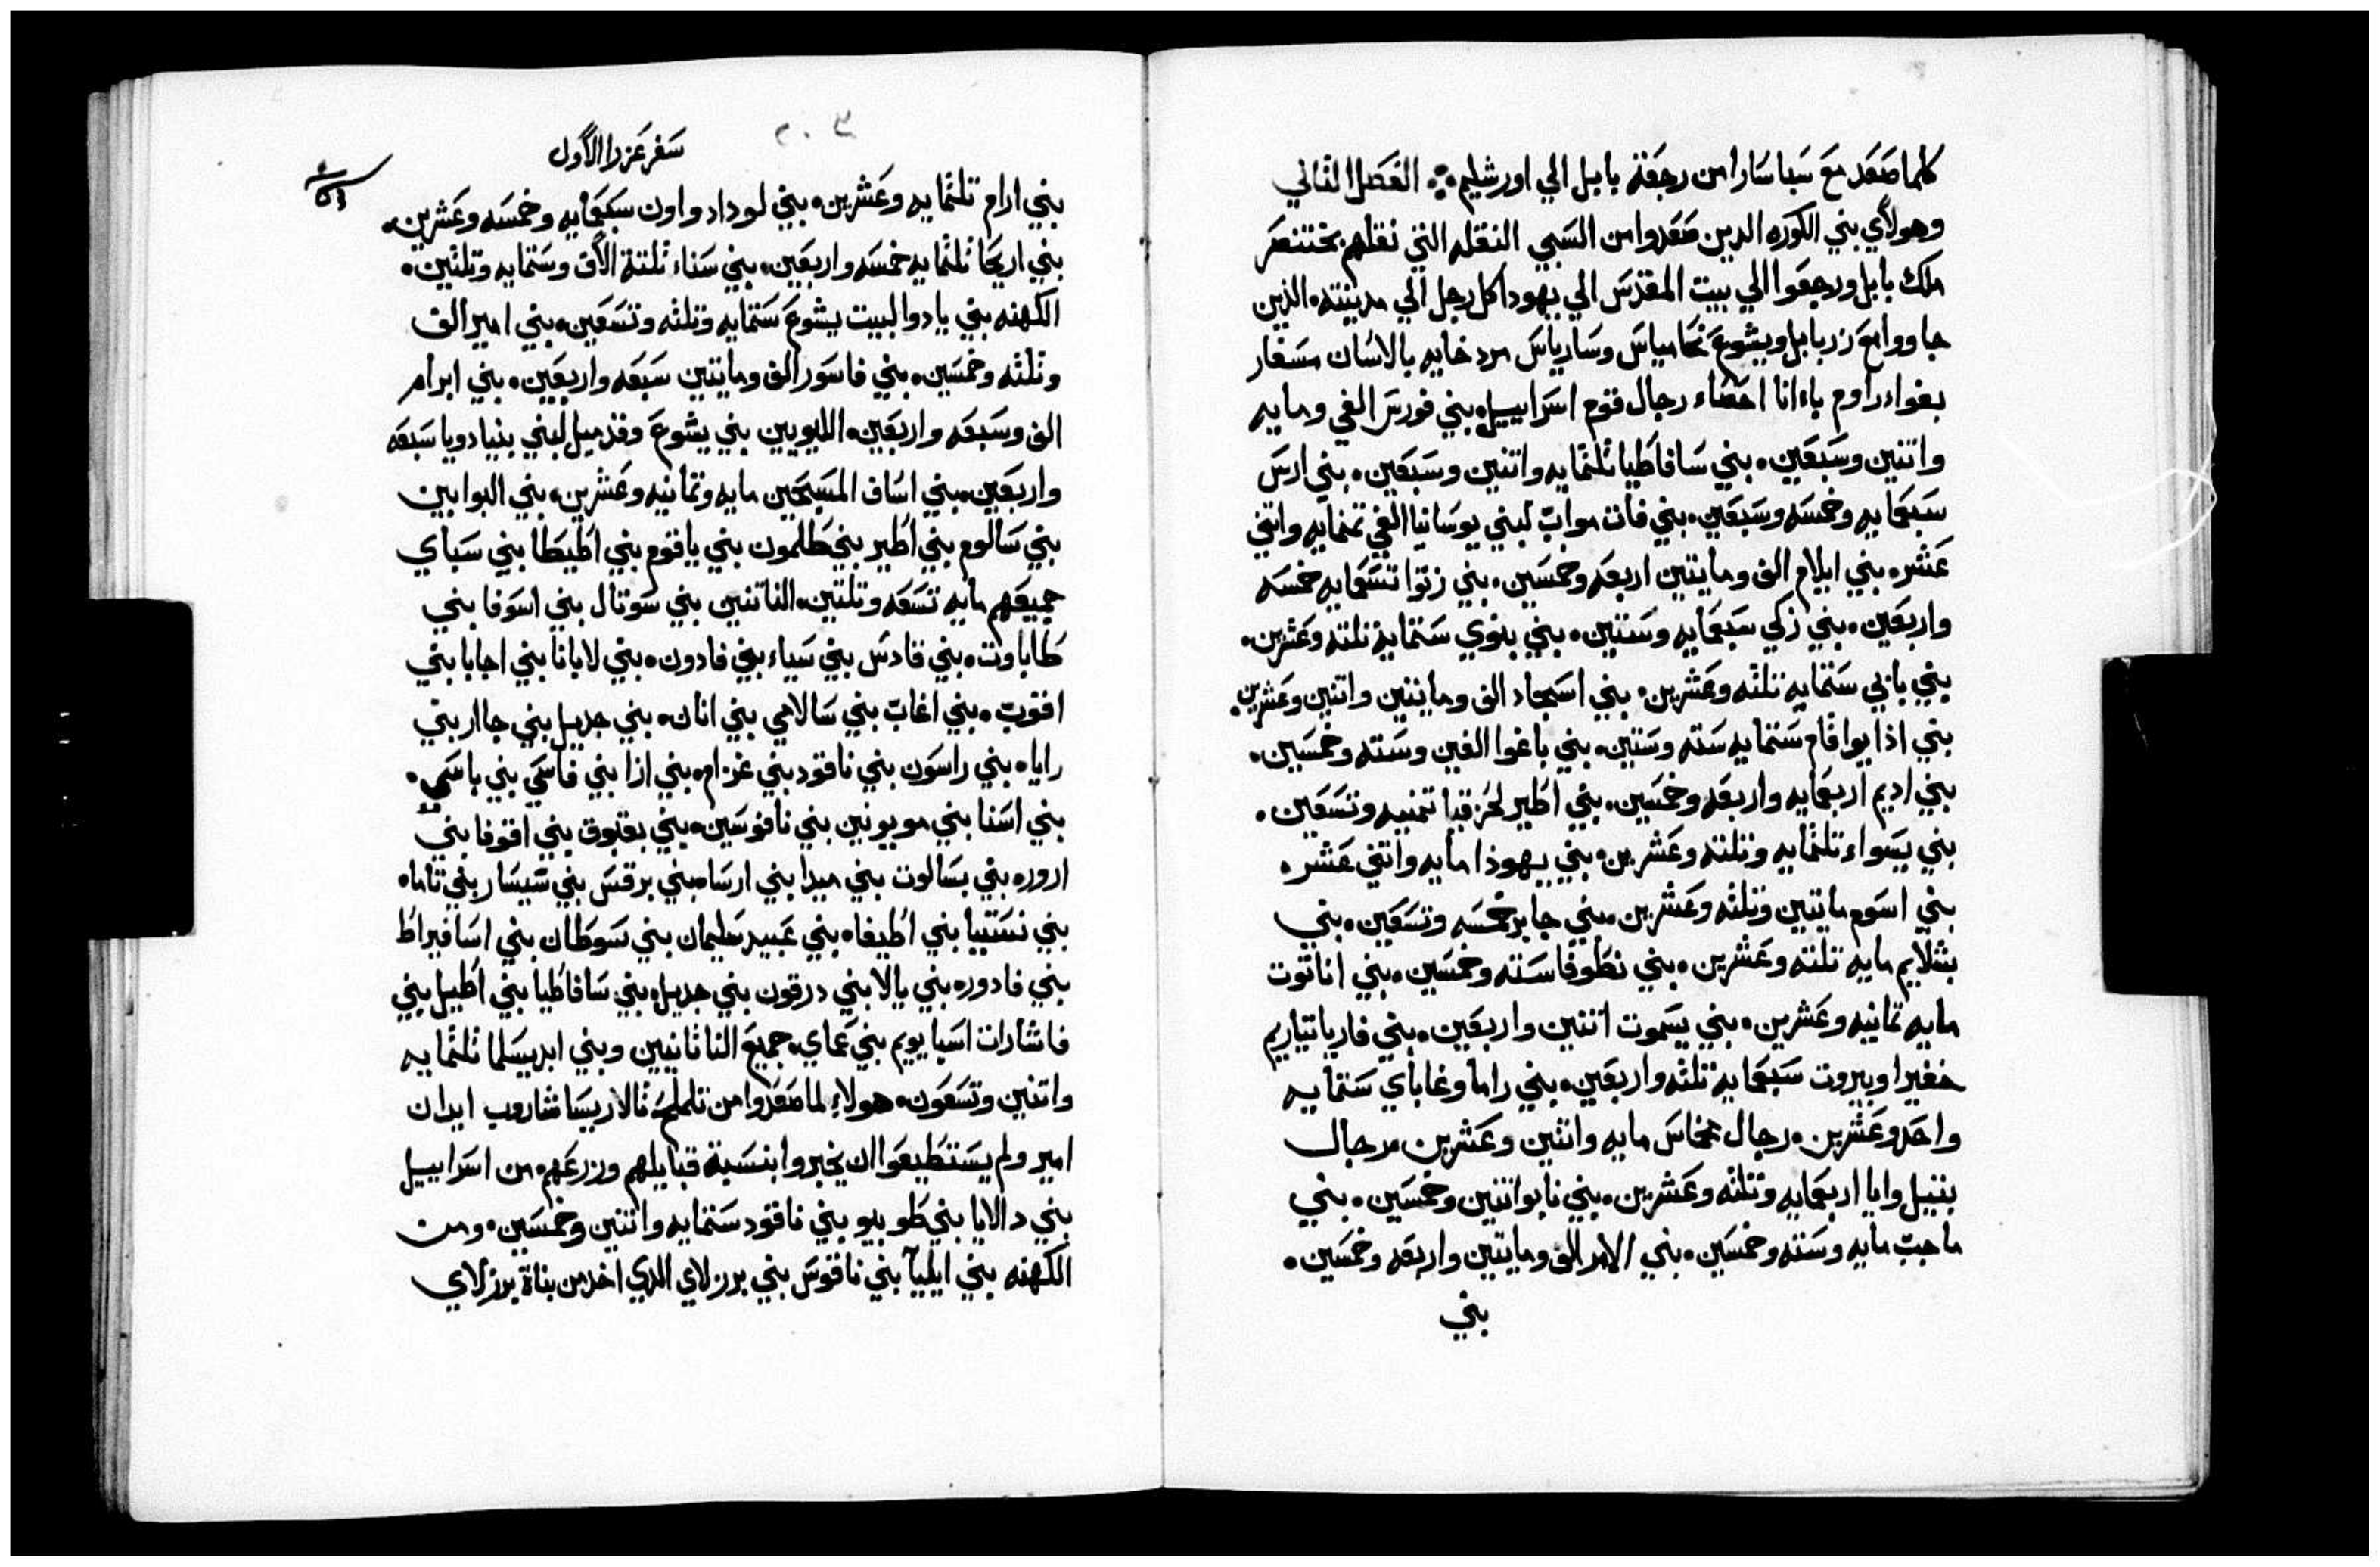 كلما صعد مع سبا سارا من رجعة بابل الي اورشليم الفصل الثاني
وهولاي بني الكوره الدين صعدوا من السبي النقله التي نقلهم بختنصر
ملك بابل ورجعوا الي بيت المقدس الي يهودا كل رجل الي مدينته الذين
جاووا مع زربابل ويشوع نحامياس وسارياس مردخايه بالاسان مسفار
بغواء راوم باءانا احصاء رجال قوم اسراييل بني فورس الفي ومايه
واتنين وسبعين بني سافاطيا تلتمايه واتنين وسبعين بني ارس
سبعمايه وخمسه وسبعين بني فات مواب لبني يوسانيا الفي تمنمايه واتني
عشر بني ايلام الف ومايتين اربعه وخمسين بني زتوا تسعمايه خمسه
واربعين بني زكي سبعمايه وستين بني بنوي ستمايه تلته وعشرين
بني بابي ستمايه تلته وعشرين بني اسجاد الف ومايتين واتنين وعشرين
بني اذانيوا قام ستمايه سته وستين بني باغوا الفين وسته وخمسين
بني اديم اربعمايه واربعه وخمسين بني اطير لحزقيا تمنيه وتسعين
بني بسواء تلتمايه وتلته وعشرين بني يهوذا مايه واتني عشر
بني اسوم مايتين وتلته وعشرين بني جابر خمسه وتسعين بني
بتلايم مايه تلته وعشرين بني نطوفا سته وخمسين بني اناتوت
مايه تمانيه وعشرين بني يسموت اتنين واربعين بني قارياتياريم
خفيرا وبيروت سبعمايه تلته واربعين بني راما وغاباي ستمايه
واحد وعشرين رجال مخماس مايه واتنين وعشرين رجال
بتيل وايا اربعمايه وتلته وعشرين بني نابو اتنين وخمسين بني
ماجب مايه وسته وخمسين بني الامر الف ومايتين واربعه وخمسين
بني
٢٠٣
سفر عزرا الاول
بني ارام تلتمايه وعشرين بني لوداد واون سبعمايه وخمسه وعشرين
بني اريحا تلتمايه خمسه واربعين بني سناء تلتة الاف وستمايه وتلتين
الكهنه بني يادوا لبيت يشوع ستمايه وتلته وتسعين بني امير الف
وتلته وخمسين بني فاسور الف ومايتين سبعه واربعين بني ابرام
الف وسبعه واربعين الليويين بني يشوع وقدميل لبني بنيادويا سبعه
واربعين بني اساف المسبحين مايه وتمانيه وعشرين بني البوابين
بني سالوم بني اطير بني طلمون بني ياقوم بني اطيطا بني سباي
جميعهم مايه تسعه وتلتين الناتنين بني سوتال بني اسوفا بني
طاباوت بني قادس بني سياء بني فادون بني لابانا بني اجابا بني
اقوب بني اغاب بني سالامي بني انان بني جديل بني جاار بني
رايا بني راسون بني ناقود بني غزام بني ازا بني فاسي بني باسي
بني اسنا بني مويونين بني نافوسين بني بقبوق بني اقوفا بني
ارور بني بسالوت بني ميدا بني ارسا بني برقس بني سيسار بني تاما
بني نستيا بني اطيفا بني عبيد سليمان بني سوطان بني اسافيراط
بني فادوره بني يالا بني درقون بني جديل بني سافاطيا بني اطيل بني
فاشارات اسبايويم بني عماي جميع الناتانيين وبني ابديسلما تلتمايه
واتنين وتسعون هولاء لما صعدوا من تلملح تالاريسا شاروب ايدان
امير ولم يستطيعوا ان يخبروا بنسبة قبايلهم وزرعهم من اسراييل
بني دالايا بني طوبيو بني ناقود ستمايه واتنين وخمسين ومن
الكهنه بني ايليا بني ناقوس بني برزلاي الدي اخد من بناة برزلاي